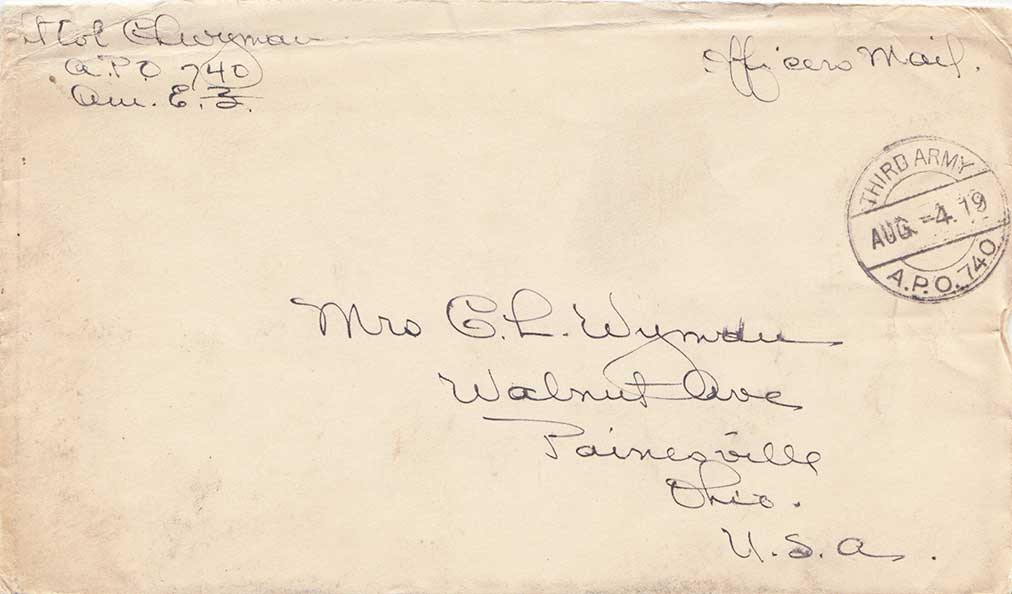 Lt Col C L Wyman
A.P.O 740
Am. E. F.
Officers Mail.
THIRD ARMY
AUG -4. 19
A.P.O. 740
Mrs C. L. Wyman
Walnut Ave
Painesville
Ohio.
U. S. A.